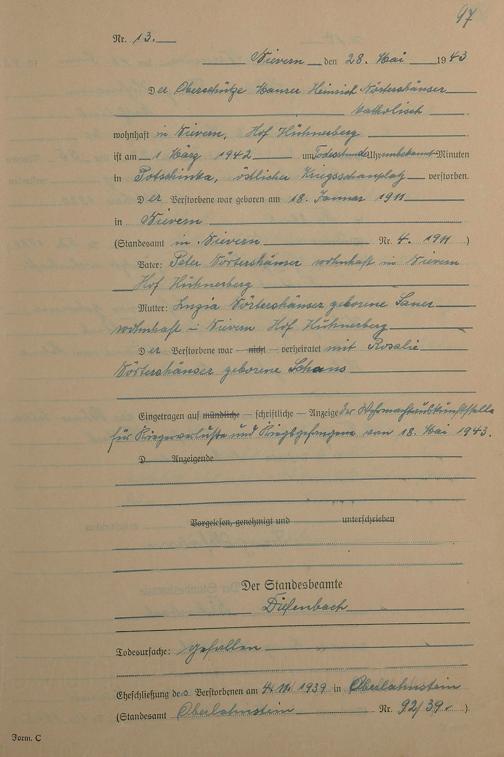 97
Nr. 13.
Nievern den 28. Mai 1943
Der Oberschütze Maurer Heinrich Nörtershäuser
katholisch
wohnhaft in Nievern, Hof Hühnerberg
ist am 1 März 1942 um Todesstunde Uhr unbekannt Minuten
in Potschinka, östlicher Kriegsschauplatz verstorben.
Der Verstorbene war geboren am 18. Januar 1911
in Nievern
(Standesamt in Nievern Nr. 4. 1911)
Vater: Peter Nörtershäuser wohnhaft in Nievern
Hof Hühnerberg
Mutter: Nörtershäuser geborene
wohnhaft in Nievern Hof Hühnerberg
Der Verstorbene war nicht verheiratet mit Rosalie
Nörtershäuser geborene
Eingetragen auf mündliche – schriftliche – Anzeige der Wehrmachtauskunftstelle
für Kriegerverluste und Kriegsgefangene vom 18. Mai 1943.
D Anzeigende
Vorgelesen, genehmigt und unterschrieben
Der Standesbeamte
Diefenbach
Todesursache: gefallen
Eheschließung des Verstorbenen am 4. 11. 1939 in Oberlahnstein
(Standesamt Oberlahnstein Nr. 92/39.)
Form. C